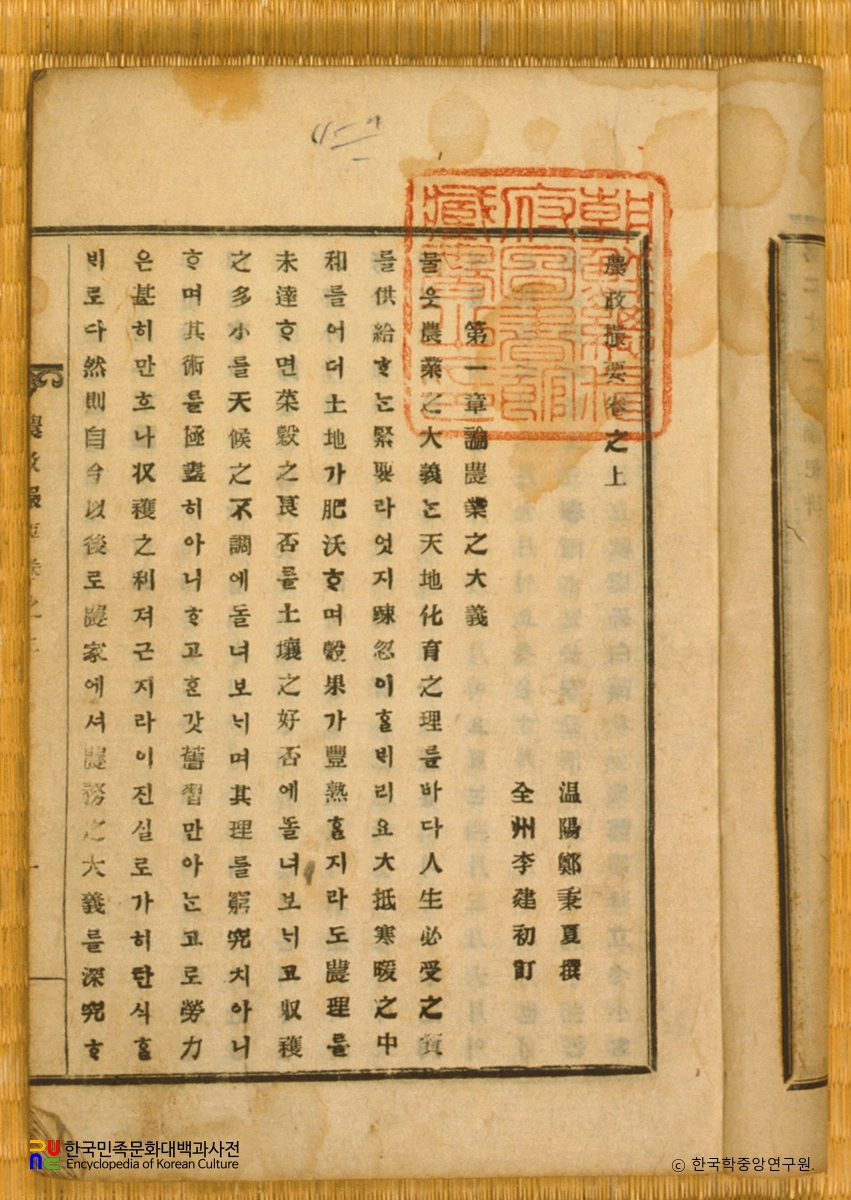 朝鮮總督府圖書館藏書之印
農政撮要卷之上
温陽鄭秉夏撰
全州李建初訂
第一章論農業之大義
물읏農業之大義는天地化育之理를바다人生必受之質
를供給ᄒᆞ는緊要라엇지踈忽이ᄒᆞᆯᄇᆡ리요大抵寒暖之中
和를어더土地가肥沃ᄒᆞ며穀果가豐熟ᄒᆞᆯ지라도農理를
未達ᄒᆞ면菜穀之良否를土壤之好否에돌녀보ᄂᆡ고収穫
之多小를天候之不調에돌녀보ᄂᆡ며其理를窮究치아니
ᄒᆞ며其術를極盡히아니ᄒᆞ고ᄒᆞᆫ갓舊習만아는고로勞力
은甚히만흐나収穫之利져근지라이진실로가히탄식ᄒᆞᆯ
ᄇᆡ로다然則自今以後로農家에셔農務之大義를深究ᄒᆞ
農政撮要卷之上
一
한국민족문화대백과사전
Encyclopedia of Korean Culture
ⓒ 한국학중앙연구원.